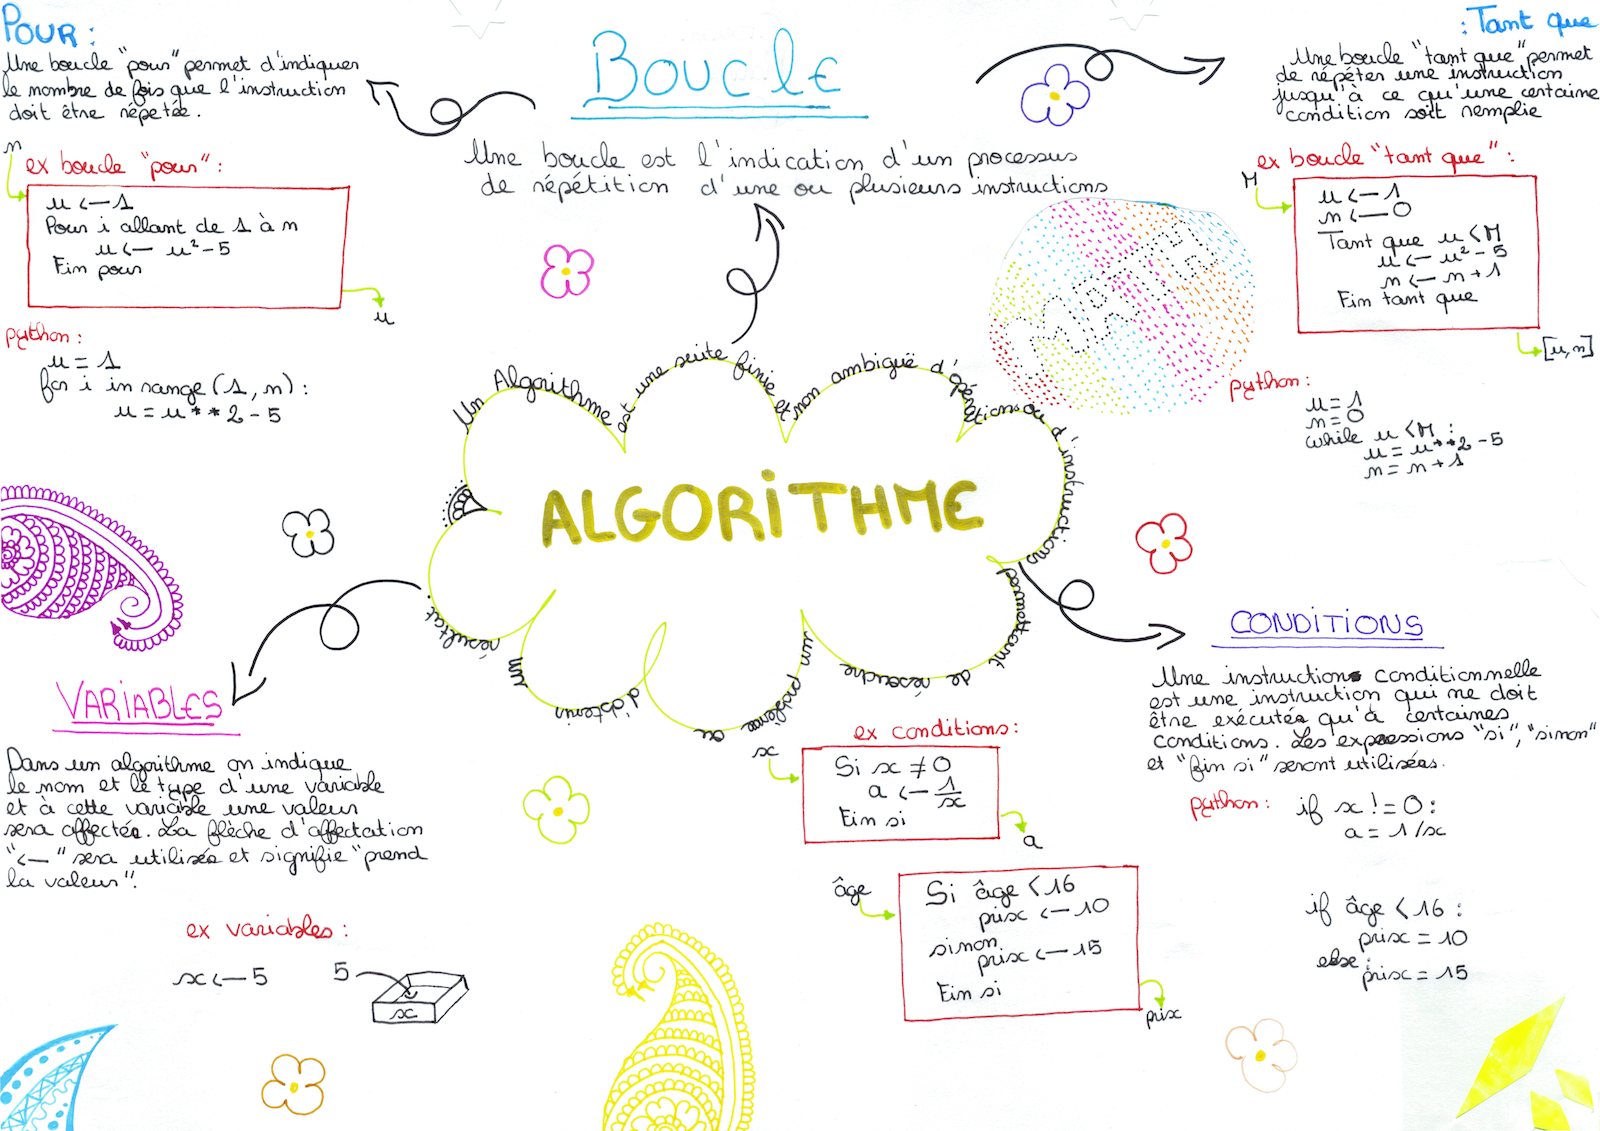 POUR :
Une boucle "pour" permet d'indiquer
le nombre de fois que l'instruction
doit être répetée.
n
ex boucle "pour" :
u <— 1
Pour i allant de 1 à n
u <— u² - 5
Fin pour
u
python :
u = 1
for i in range (1, n) :
u = u * * 2 - 5
BOUCLE
Une boucle est l'indication d'un processus
de répétition d'une ou plusieurs instructions
: Tant que
Une boucle "tant que" permet
de répéter une instruction
jusqu'à ce qu'une certaine
condition soit remplie
ex boucle "tant que" :
M
u <— 1
n <— 0
Tant que u < M
u <— u² - 5
n <— n + 1
Fin tant que
[u, n]
python :
u = 1
n = 0
while u < M :
u = u * * 2 - 5
n = n + 1
MATH
Un Algorithme est une suite finie et non ambiguë d'opérations ou d'instructions permettant de résoudre un problème ou d'obtenir un résultat.
ALGORITHME
VARIABLES
Dans un algorithme on indique
le nom et le type d'une variable
et à cette variable une valeur
sera affectée. La flèche d'affectation
"<—" sera utilisée et signifie "prend
la valeur".
ex variables :
x <— 5
5
x
CONDITIONS
Une instruction conditionnelle
est une instruction qui ne doit
être exécutée qu'à certaines
conditions. Les expressions "si", "sinon"
et "fin si" seront utilisées.
ex conditions :
x
Si x ≠ 0
a <— 1/x
Fin si
a
python :
if x != 0 :
a = 1/x
âge
Si âge < 16
prix <— 10
sinon
prix <— 15
Fin si
prix
if âge < 16 :
prix = 10
else :
prix = 15